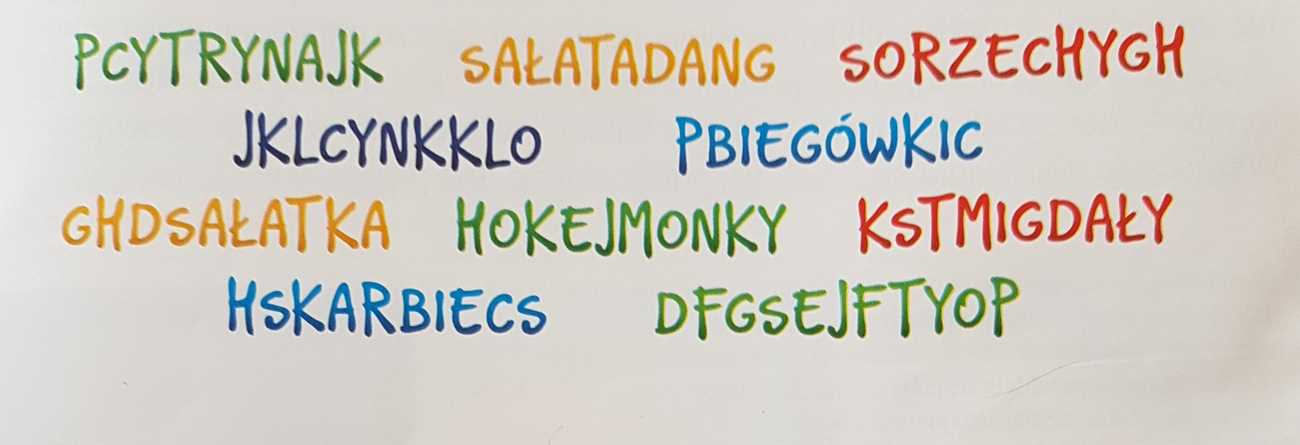 PCYTRYNAJK SAŁATADANG SORZECHYGH
JKLCYNKKLO PBIEGÓWKIC
GHDSAŁATKA HOKEJMONKY KSTMIGDAŁY
HSKARBIECS DFGSEJFTYOP